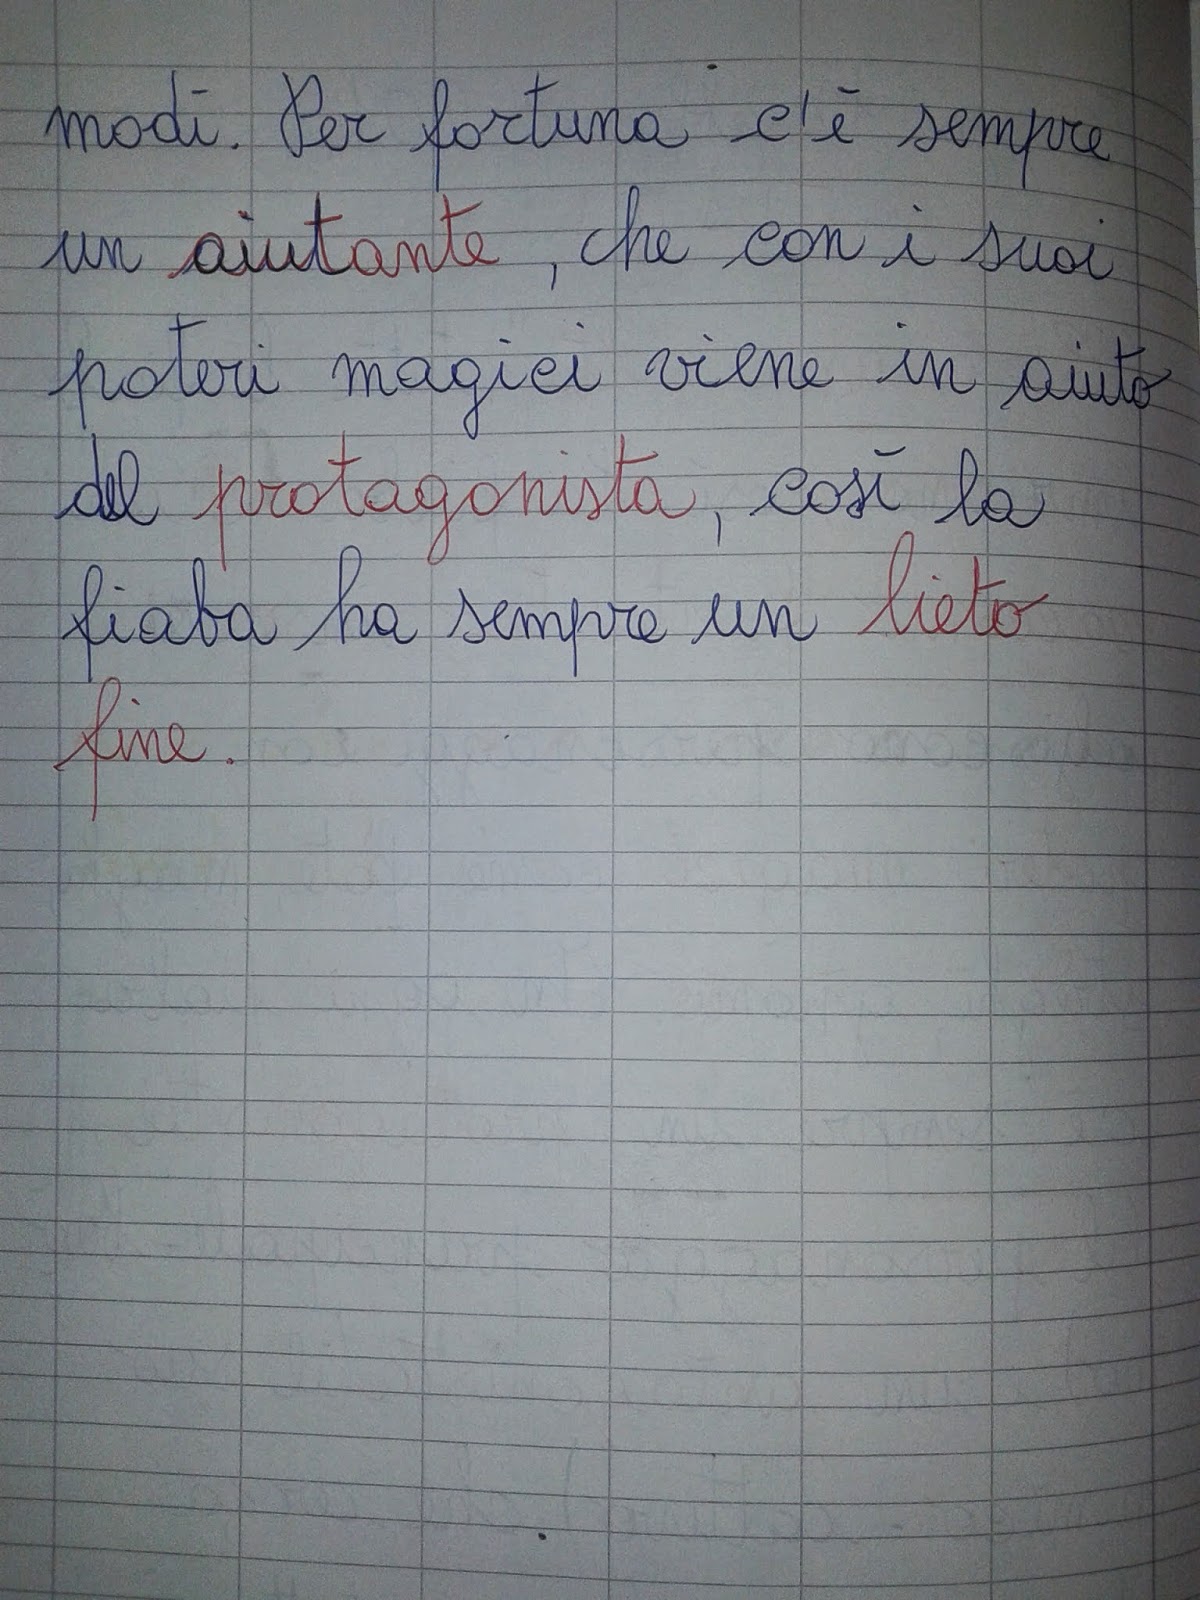 modi. Per fortuna c'è sempre
un aiutante, che con i suoi
poteri magici viene in aiuto
del protagonista, così la
fiaba ha sempre un lieto
fine.